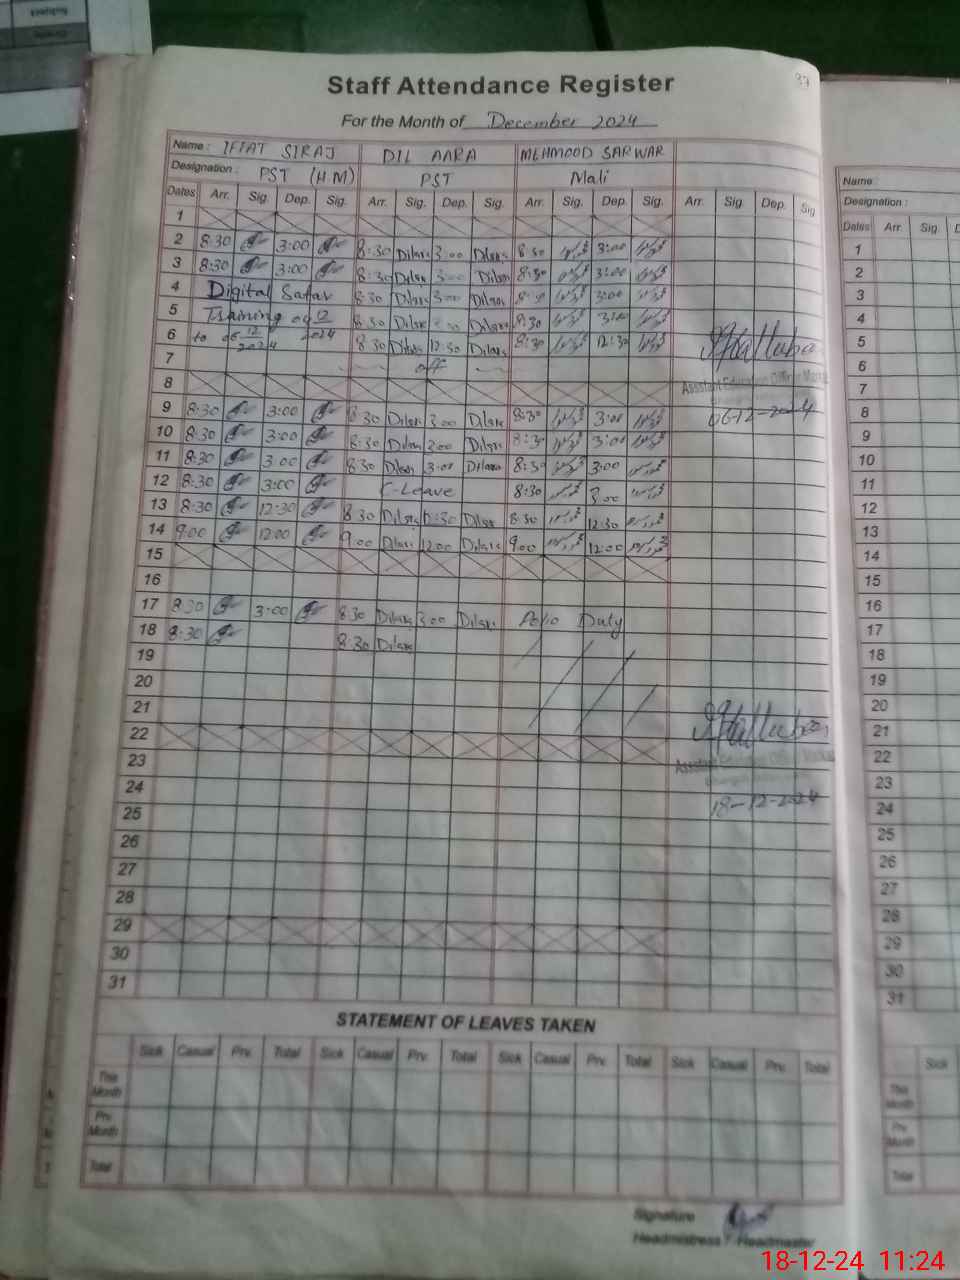 Staff Attendance Register
37
For the Month of December 2024
Name : IFFAT SIRAJ DIL AARA MEHMOOD SARWAR
Designation : PST (HM) PST Mali
Dates Arr. Sig. Dep. Sig. Arr. Sig. Dep. Sig. Arr. Sig. Dep. Sig. Arr. Sig. Dep. Sig
1
2 8:30 3:00 8:30 Dilara 3:00 Dilara 8:30 3:00
3 8:30 3:00 8:30 Dilara 3:00 Dilara 8:30 3:00
4 Digital Safar 8:30 Dilara 3:00 Dilara 8:30 3:00
5 Training 12 2024 8:30 Dilara 3:00 Dilara 8:30 3:00
6 to 06 12 2024 8:30 Dilara 12:30 Dilara 8:30 12:30
7 off
8
Assistant Education Officer
06-12-2024
9 8:30 3:00 8:30 Dilara 3:00 Dilara 8:30 3:00
10 8:30 3:00 8:30 Dilara 3:00 Dilara 8:30 3:00
11 8:30 3:00 8:30 Dilara 3:00 Dilara 8:30 3:00
12 8:30 3:00 C-Leave 8:30 3:00
13 8:30 12:30 8:30 Dilara 12:30 Dilara 8:30 12:30
14 9:00 12:00 9:00 Dilara 12:00 Dilara 9:00 12:00
15
16
17 8:30 3:00 8:30 Dilara 3:00 Dilara Polio Duty
18 8:30 8:30 Dilara
19
20
21
22
Assistant Education Officer
18-12-2024
23
24
25
26
27
28
29
30
31
STATEMENT OF LEAVES TAKEN
Sick Casual Prv. Total Sick Casual Prv. Total Sick Casual Prv. Total Sick Casual Prv. Total
This Month
Prv. Month
Total
Signature
Headmistress / Headmaster
Name :
Designation :
Dates Arr. Sig. D
1
2
3
4
5
6
7
8
9
10
11
12
13
14
15
16
17
18
19
20
21
22
23
24
25
26
27
28
29
30
31
Sick
This Month
Prv. Month
Total
18-12-24 11:24